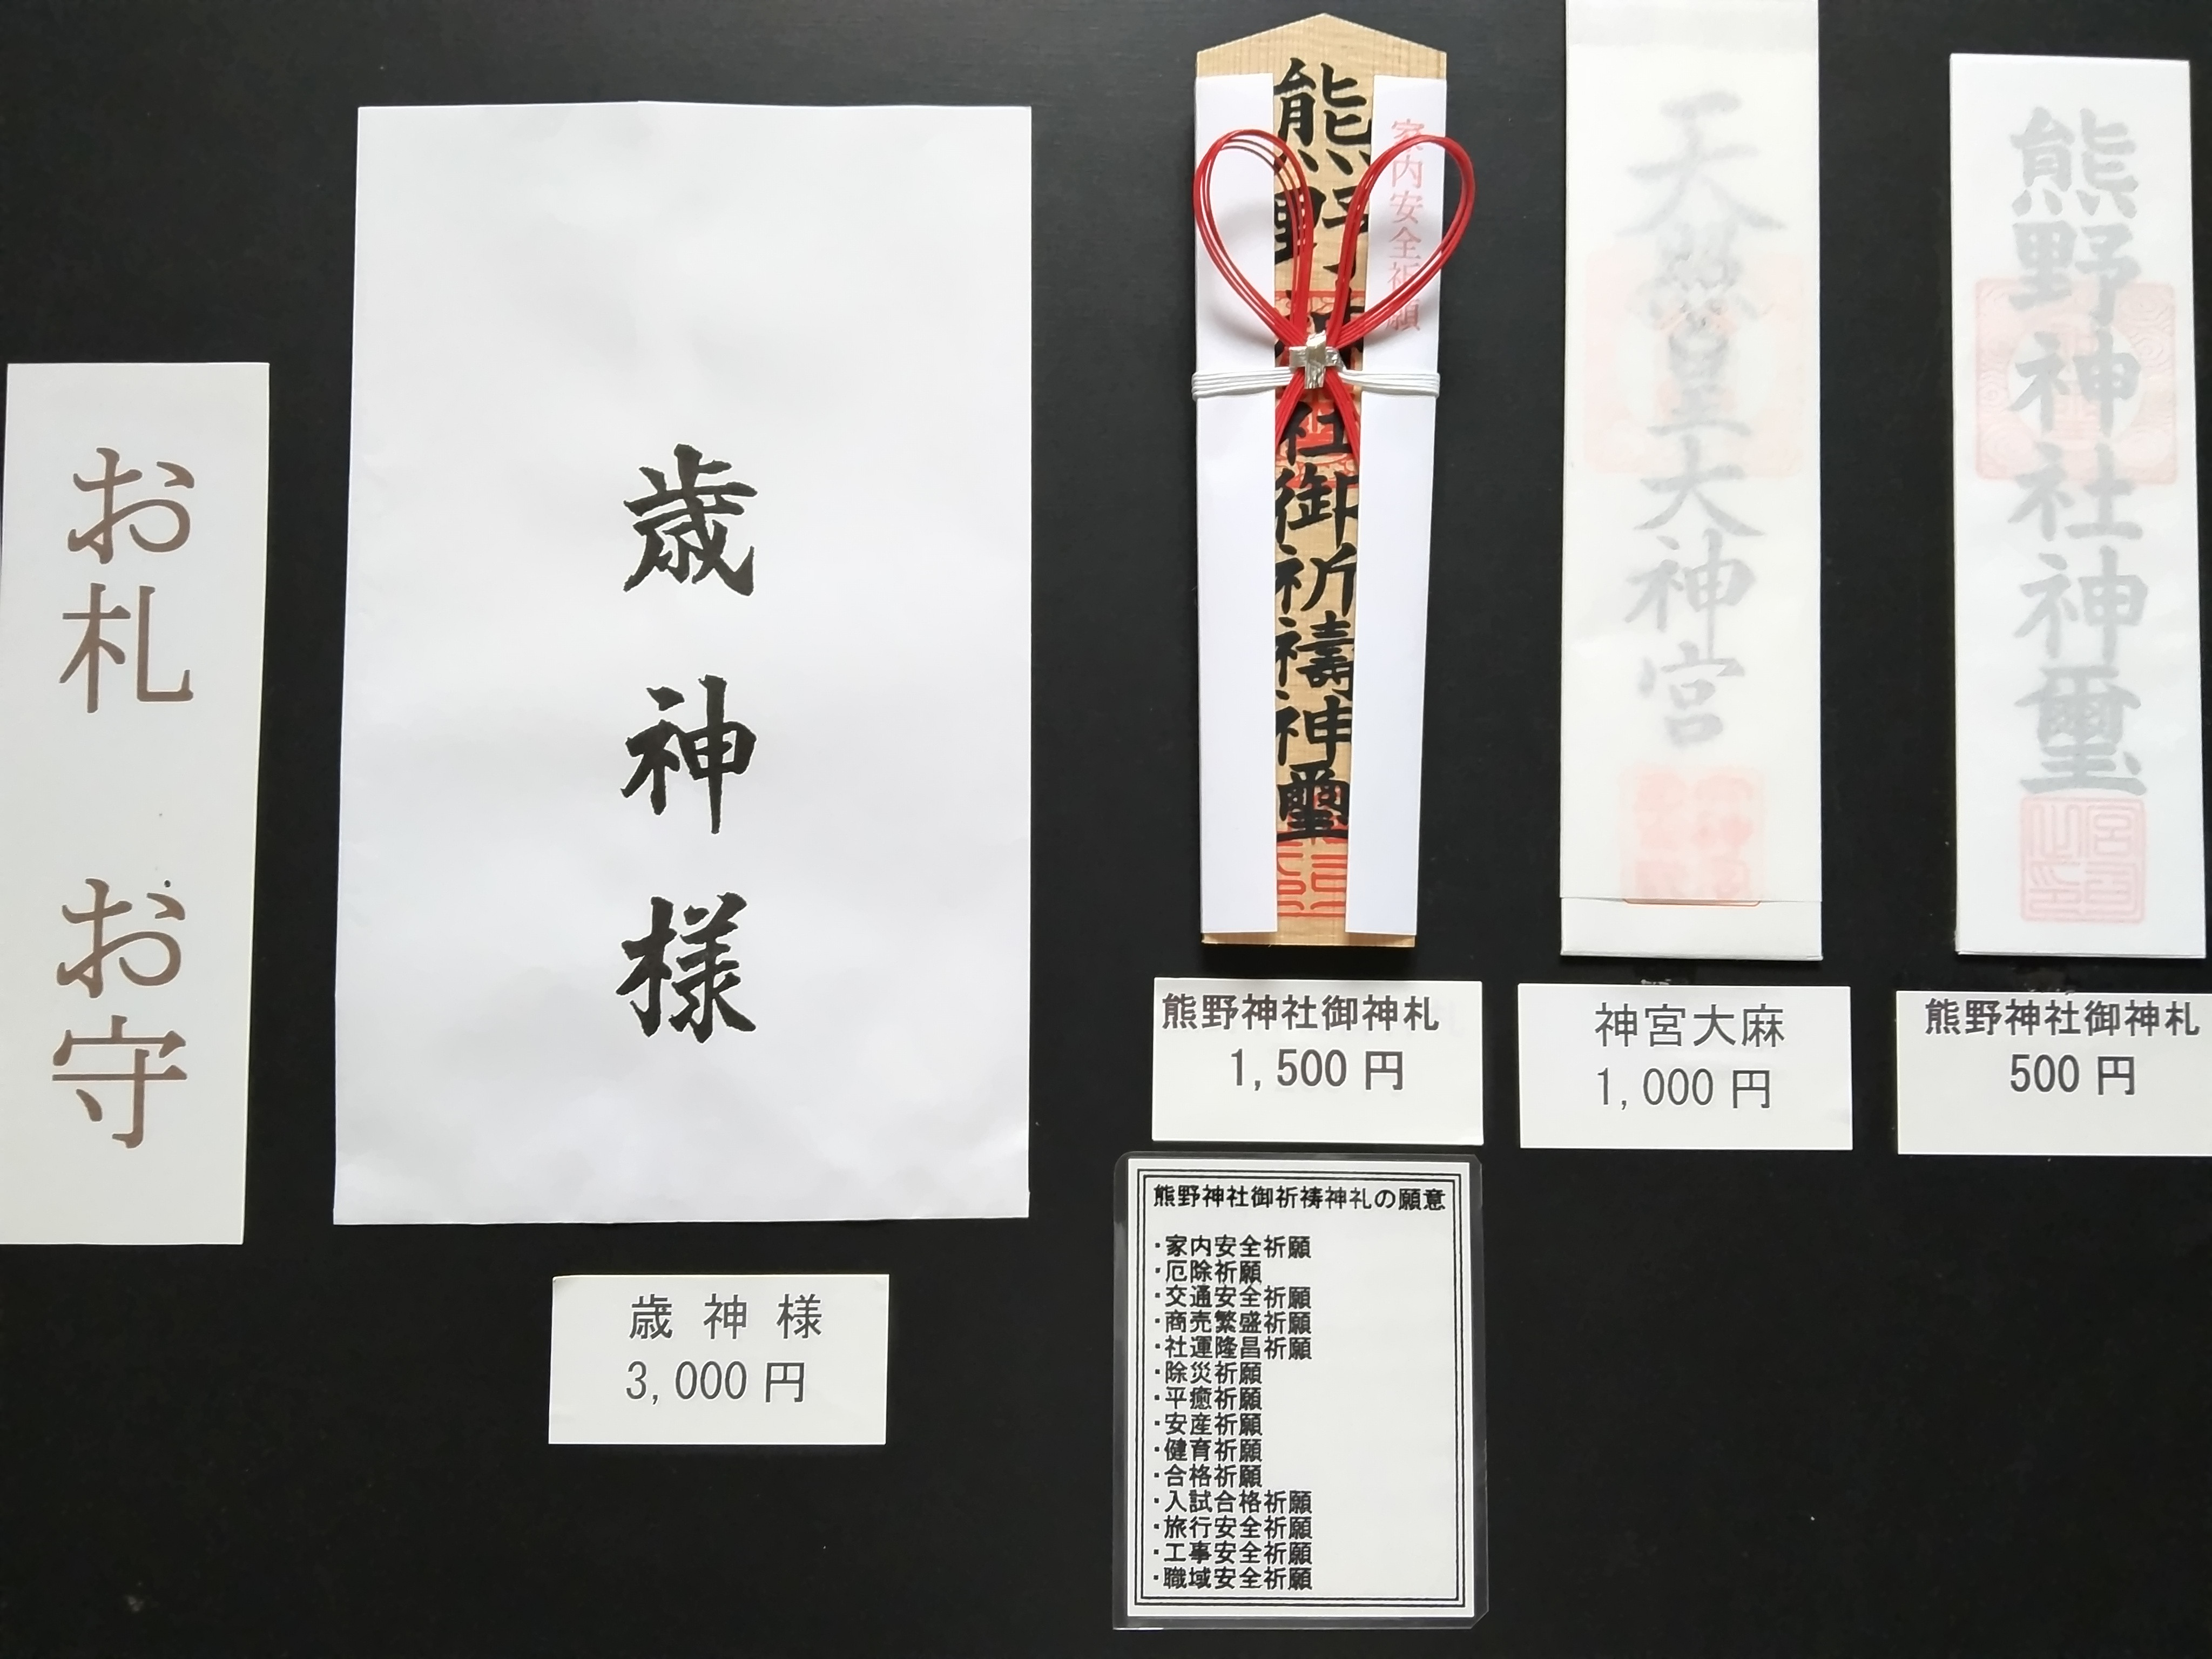 お札 お守
歳神様
歳神様
3,000円
熊野神社御祈禱神璽
家内安全祈願
熊野神社御神札
1,500円
天照皇大神宮
神宮大麻
1,000円
熊野神社神璽
熊野神社御神札
500円
熊野神社御祈祷神礼の願意
・家内安全祈願
・厄除祈願
・交通安全祈願
・商売繁盛祈願
・社運隆昌祈願
・除災祈願
・平癒祈願
・安産祈願
・健育祈願
・合格祈願
・入試合格祈願
・旅行安全祈願
・工事安全祈願
・職域安全祈願